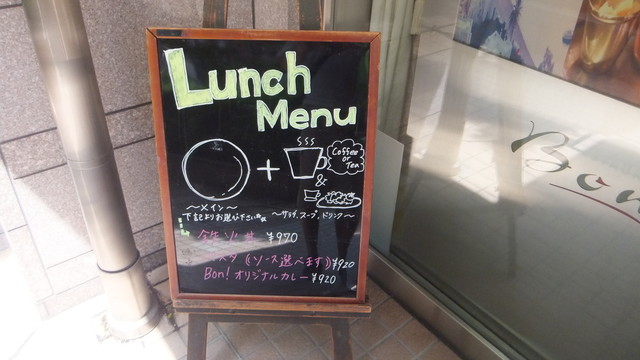 Lunch
Menu
+
Coffee
or
Tea
&
～メイン～
下記よりお選び下さい
～サラダ、スープ、ドリンク～
¥970
(ソース選べます) ¥920
Bon! オリジナルカレー ¥920
Bon